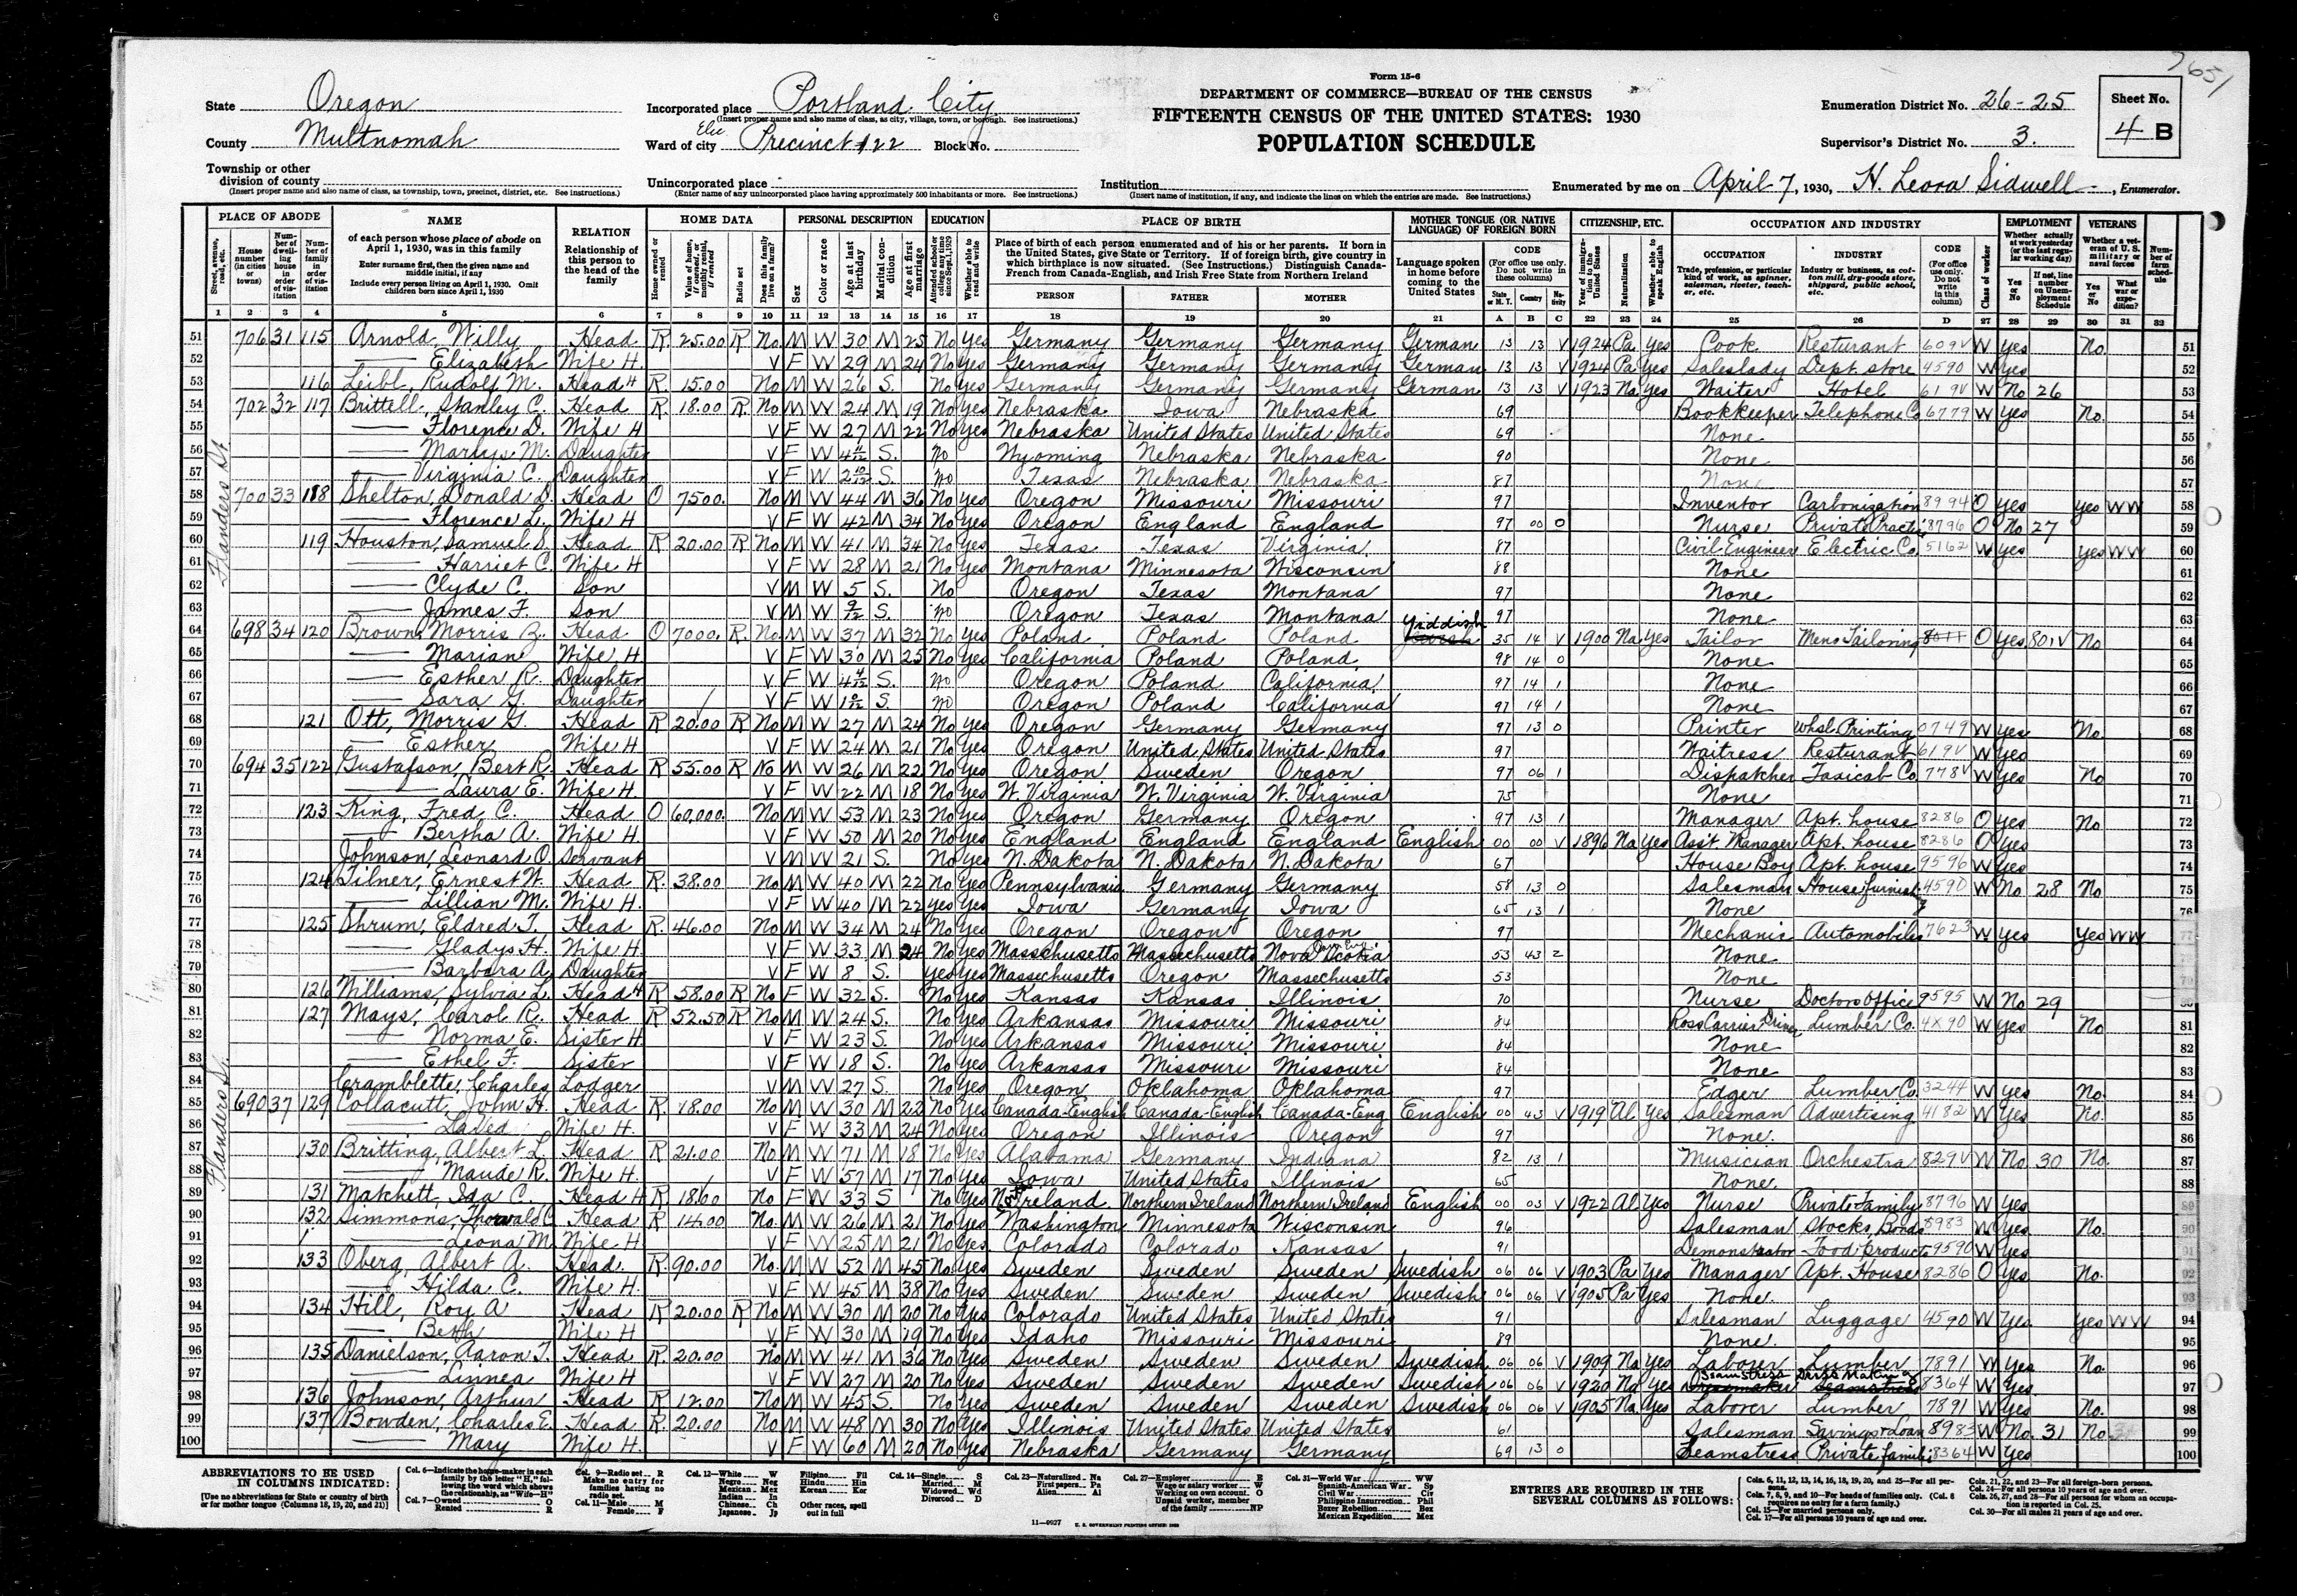 7651
Form 15-6
State Oregon
Incorporated place Portland City
(Insert proper name and also name of class, as city, village, town, or borough. See instructions.)
DEPARTMENT OF COMMERCE—BUREAU OF THE CENSUS
FIFTEENTH CENSUS OF THE UNITED STATES: 1930
POPULATION SCHEDULE
Enumeration District No. 26-25
Sheet No.
4 B
County Multnomah
Ward of city Elec. Precinct #122 Block No.
Supervisor's District No. 3.
Township or other division of county
(Insert proper name and also name of class, as township, town, precinct, district, etc. See instructions.)
Unincorporated place
(Enter name of any unincorporated place having approximately 500 inhabitants or more. See instructions.)
Institution
(Insert name of institution, if any, and indicate the lines on which the entries are made. See instructions.)
Enumerated by me on April 7, 1930, H. Leora Sidwell, Enumerator.
PLACE OF ABODE NAME RELATION HOME DATA PERSONAL DESCRIPTION EDUCATION PLACE OF BIRTH MOTHER TONGUE (OR NATIVE LANGUAGE) OF FOREIGN BORN CITIZENSHIP, ETC. OCCUPATION AND INDUSTRY EMPLOYMENT VETERANS
1 2 3 4 5 6 7 8 9 10 11 12 13 14 15 16 17 18 19 20 21 A B C 22 23 24 25 26 D 27 28 29 30 31 32
Flanders St.
51 706 31 115 Arnold, Willy Head R 25.00 R No M W 30 M 25 No Yes Germany Germany Germany German 13 13 V 1924 Pa Yes Cook Resturant 609V W Yes No 51
52 — Elizabeth Wife H V F W 29 M 24 No Yes Germany Germany Germany German 13 13 V 1924 Pa Yes Saleslady Dept. store 4590 W Yes 52
53 116 Leibl, Rudolf M. Head H R 15.00 No M W 26 S. No Yes Germany Germany Germany German 13 13 V 1923 Na Yes Waiter Hotel 619V W No 26 53
54 702 32 117 Brittell, Stanley C. Head R. 18.00 R. No M W 24 M 19 No Yes Nebraska Iowa Nebraska 69 Bookkeeper Telephone Co 6779 W Yes No. 54
55 — Florence D. Wife H V F W 27 M 22 No Yes Nebraska United States United States 69 None 55
56 — Marlys M. Daughter V F W 4 11/12 S. No Wyoming Nebraska Nebraska 90 None 56
57 — Virginia C. Daughter V F W 2 10/12 S No Texas Nebraska Nebraska 87 None 57
58 700 33 118 Shelton, Donald D. Head O 7500. No M W 44 M 36 No Yes Oregon Missouri Missouri 97 Inventor Carbonization 8994 O Yes Yes WW 58
59 — Florence L. Wife H V F W 42 M 34 No Yes Oregon England England 97 00 0 Nurse Private Practice 8796 O No 27 59
60 119 Houston, Samuel S. Head R 20.00 R No M W 41 M 34 No Yes Texas Texas Virginia 87 Civil Engineer Electric Co. 5162 W Yes Yes WW 60
61 — Harriet C. Wife H V F W 28 M 21 No Yes Montana Minnesota Wisconsin 88 None 61
62 — Clyde C. Son V M W 5 S. No Oregon Texas Montana 97 None 62
63 — James F. Son V M W 9/12 S. No Oregon Texas Montana 97 None 63
64 698 34 120 Brown, Morris Z. Head O 7000. R. No M W 37 M 32 No Yes Poland Poland Poland Yiddish 35 14 V 1900 Na Yes Tailor Mens Tailoring O Yes 801V No 64
65 — Marian Wife H V F W 30 M 25 No Yes California Poland Poland 98 14 0 None 65
66 — Esther R. Daughter V F W 4 4/12 S. No Oregon Poland California 97 14 1 None 66
67 — Sara G. Daughter V F W S. No Oregon Poland California 97 14 1 None 67
68 121 Ott, Morris G. Head R 20.00 R No M W 27 M 24 No Yes Oregon Germany Germany 97 13 0 Printer Whsl Printing 0749 W Yes No. 68
69 — Esther Wife H V F W 24 M 21 No Yes Oregon United States United States 97 Waitress Resturant 619V W Yes 69
70 694 35 122 Gustafson, Bert R. Head R 55.00 R No M W 26 M 22 No Yes Oregon Sweden Oregon 97 06 1 Dispatcher Taxicab Co 778V W Yes No 70
71 — Laura E. Wife H. V F W 22 M 18 No Yes W. Virginia W. Virginia W. Virginia 75 None 71
72 123 King, Fred C. Head O 60,000. No M W 53 M 23 No Yes Oregon Germany Oregon 97 13 1 Manager Apt. house 8286 O Yes No 72
73 — Bertha A. Wife H. V F W 50 M 20 No Yes England England England English 00 00 V 1896 Na Yes Ass't Manager Apt. house 8286 O Yes 73
74 Johnson, Leonard O. Servant V M W 21 S. No Yes N. Dakota N. Dakota N. Dakota 67 House Boy Apt. house 9596 W Yes 74
75 124 Tilner, Ernest W. Head R. 38.00 No M W 40 M 22 No Yes Pennsylvania Germany Germany 58 13 0 Salesman House Furnish'g 4590 W No 28 No 75
76 — Lillian M. Wife H. V F W 40 M 22 Yes Yes Iowa Germany Iowa 65 13 1 None 76
77 125 Shrum, Eldred T. Head R. 46.00 No M W 34 M 24 No Yes Oregon Oregon Oregon 97 Mechanic Automobiles 7623 W Yes Yes WW 77
78 — Gladys H. Wife H V F W 33 M 24 No Yes Massachusetts Massachusetts Nova Scotia 53 43 2 None 78
79 — Barbara A. Daughter V F W 8 S. Yes Yes Massechusetts Oregon Massechusetts 53 None 79
80 126 Williams, Sylvia L. Head H R 58.00 R No F W 32 S. No Yes Kansas Kansas Illinois 70 Nurse Doctors Office 9595 W No 29
81 127 Mays, Carol R. Head R 52.50 R No M W 24 S. No Yes Arkansas Missouri Missouri 84 Ross Carrier Driver Lumber Co. 4X90 W Yes No 81
82 — Norma E. Sister H. V F W 23 S. No Yes Arkansas Missouri Missouri 84 None 82
83 — Ethel F. Sister V F W 18 S. No Yes Arkansas Missouri Missouri 84 None 83
84 Cramblette, Charles Lodger V M W 27 S. No Yes Oregon Oklahoma Oklahoma 97 Edger Lumber Co. 3244 W Yes No. 84
85 690 37 129 Collacutt, John H. Head R. 18.00 No M W 30 M 22 No Yes Canada-English Canada-English Canada-Eng English 00 43 V 1919 Al Yes Salesman Advertising 4182 W Yes No. 85
86 — Wife H. V F W 33 M 24 No Yes Oregon Illinois Oregon 97 None. 86
87 130 Britting, Albert L. Head R 21.00 No M W 71 M 18 No Yes Alabama Germany Indiana 82 13 1 Musician Orchestra 829V W No 30 No. 87
88 — Maude R. Wife H. V F W 57 M 17 No Yes Iowa United States Illinois 65 None. 88
89 131 Matchett, Ida C. Head H R 18.00 No F W 33 S No Yes North Ireland Northern Ireland Northern Ireland English 00 03 V 1922 Al Yes Nurse Private Family 8796 W Yes 89
90 132 Simmons, Thorvald C. Head R 14.00 No. M W 26 M 21 No Yes Washington Minnesota Wisconsin 96 Salesman Stocks, Bonds 8983 W Yes No. 90
91 — Leona M. Wife H V F W 25 M 21 No Yes Colorado Colorado Kansas 91 Demonstrator Food products 9590 W Yes 91
92 133 Oberg, Albert A. Head. R. 90.00 No. M W 52 M 45 No Yes Sweden Sweden Sweden Swedish 06 06 V 1903 Pa Yes Manager Apt. House 8286 O Yes No. 92
93 — Hilda C. Wife H. V F W 45 M 38 No Yes Sweden Sweden Sweden Swedish 06 06 V 1905 Pa Yes None. 93
94 134 Hill, Roy A Head R 20.00 R No M W 30 M 20 No Yes Colorado United States United States 91 Salesman Luggage 4590 W Yes Yes WW 94
95 — Beth Wife H V F W 30 M 19 No Yes Idaho Missouri Missouri 89 None. 95
96 135 Danielson, Aaron T. Head R. 20.00 No M W 41 M 36 No Yes Sweden Sweden Sweden Swedish 06 06 V 1909 Na Yes Laborer Lumber 7891 W Yes No. 96
97 — Linnea Wife H V F W 27 M 20 No Yes Sweden Sweden Sweden Swedish 06 06 V 1920 Na Yes Seamstress Dress Making 8364 W Yes 97
98 136 Johnson, Arthur Head R 12.00 No M W 45 S No Yes Sweden Sweden Sweden Swedish 06 06 V 1905 Na Yes Laborer Lumber 7891 W Yes No. 98
99 137 Bowden, Charles E. Head R. 20.00 No M W 48 M 30 No Yes Illinois United States United States 61 Salesman Savings & Loan 8983 W No. 31 No 99
100 — Mary Wife H. V F W 60 M 20 No Yes Nebraska Germany Germany 69 13 0 Seamstress Private Family 8364 W Yes 100
Flanders St.
ABBREVIATIONS TO BE USED IN COLUMNS INDICATED:
[Use no abbreviations for State or country of birth or for mother tongue (Columns 18, 19, 20, and 21)]
ENTRIES ARE REQUIRED IN THE SEVERAL COLUMNS AS FOLLOWS:
11—9927 U. S. GOVERNMENT PRINTING OFFICE: 1929